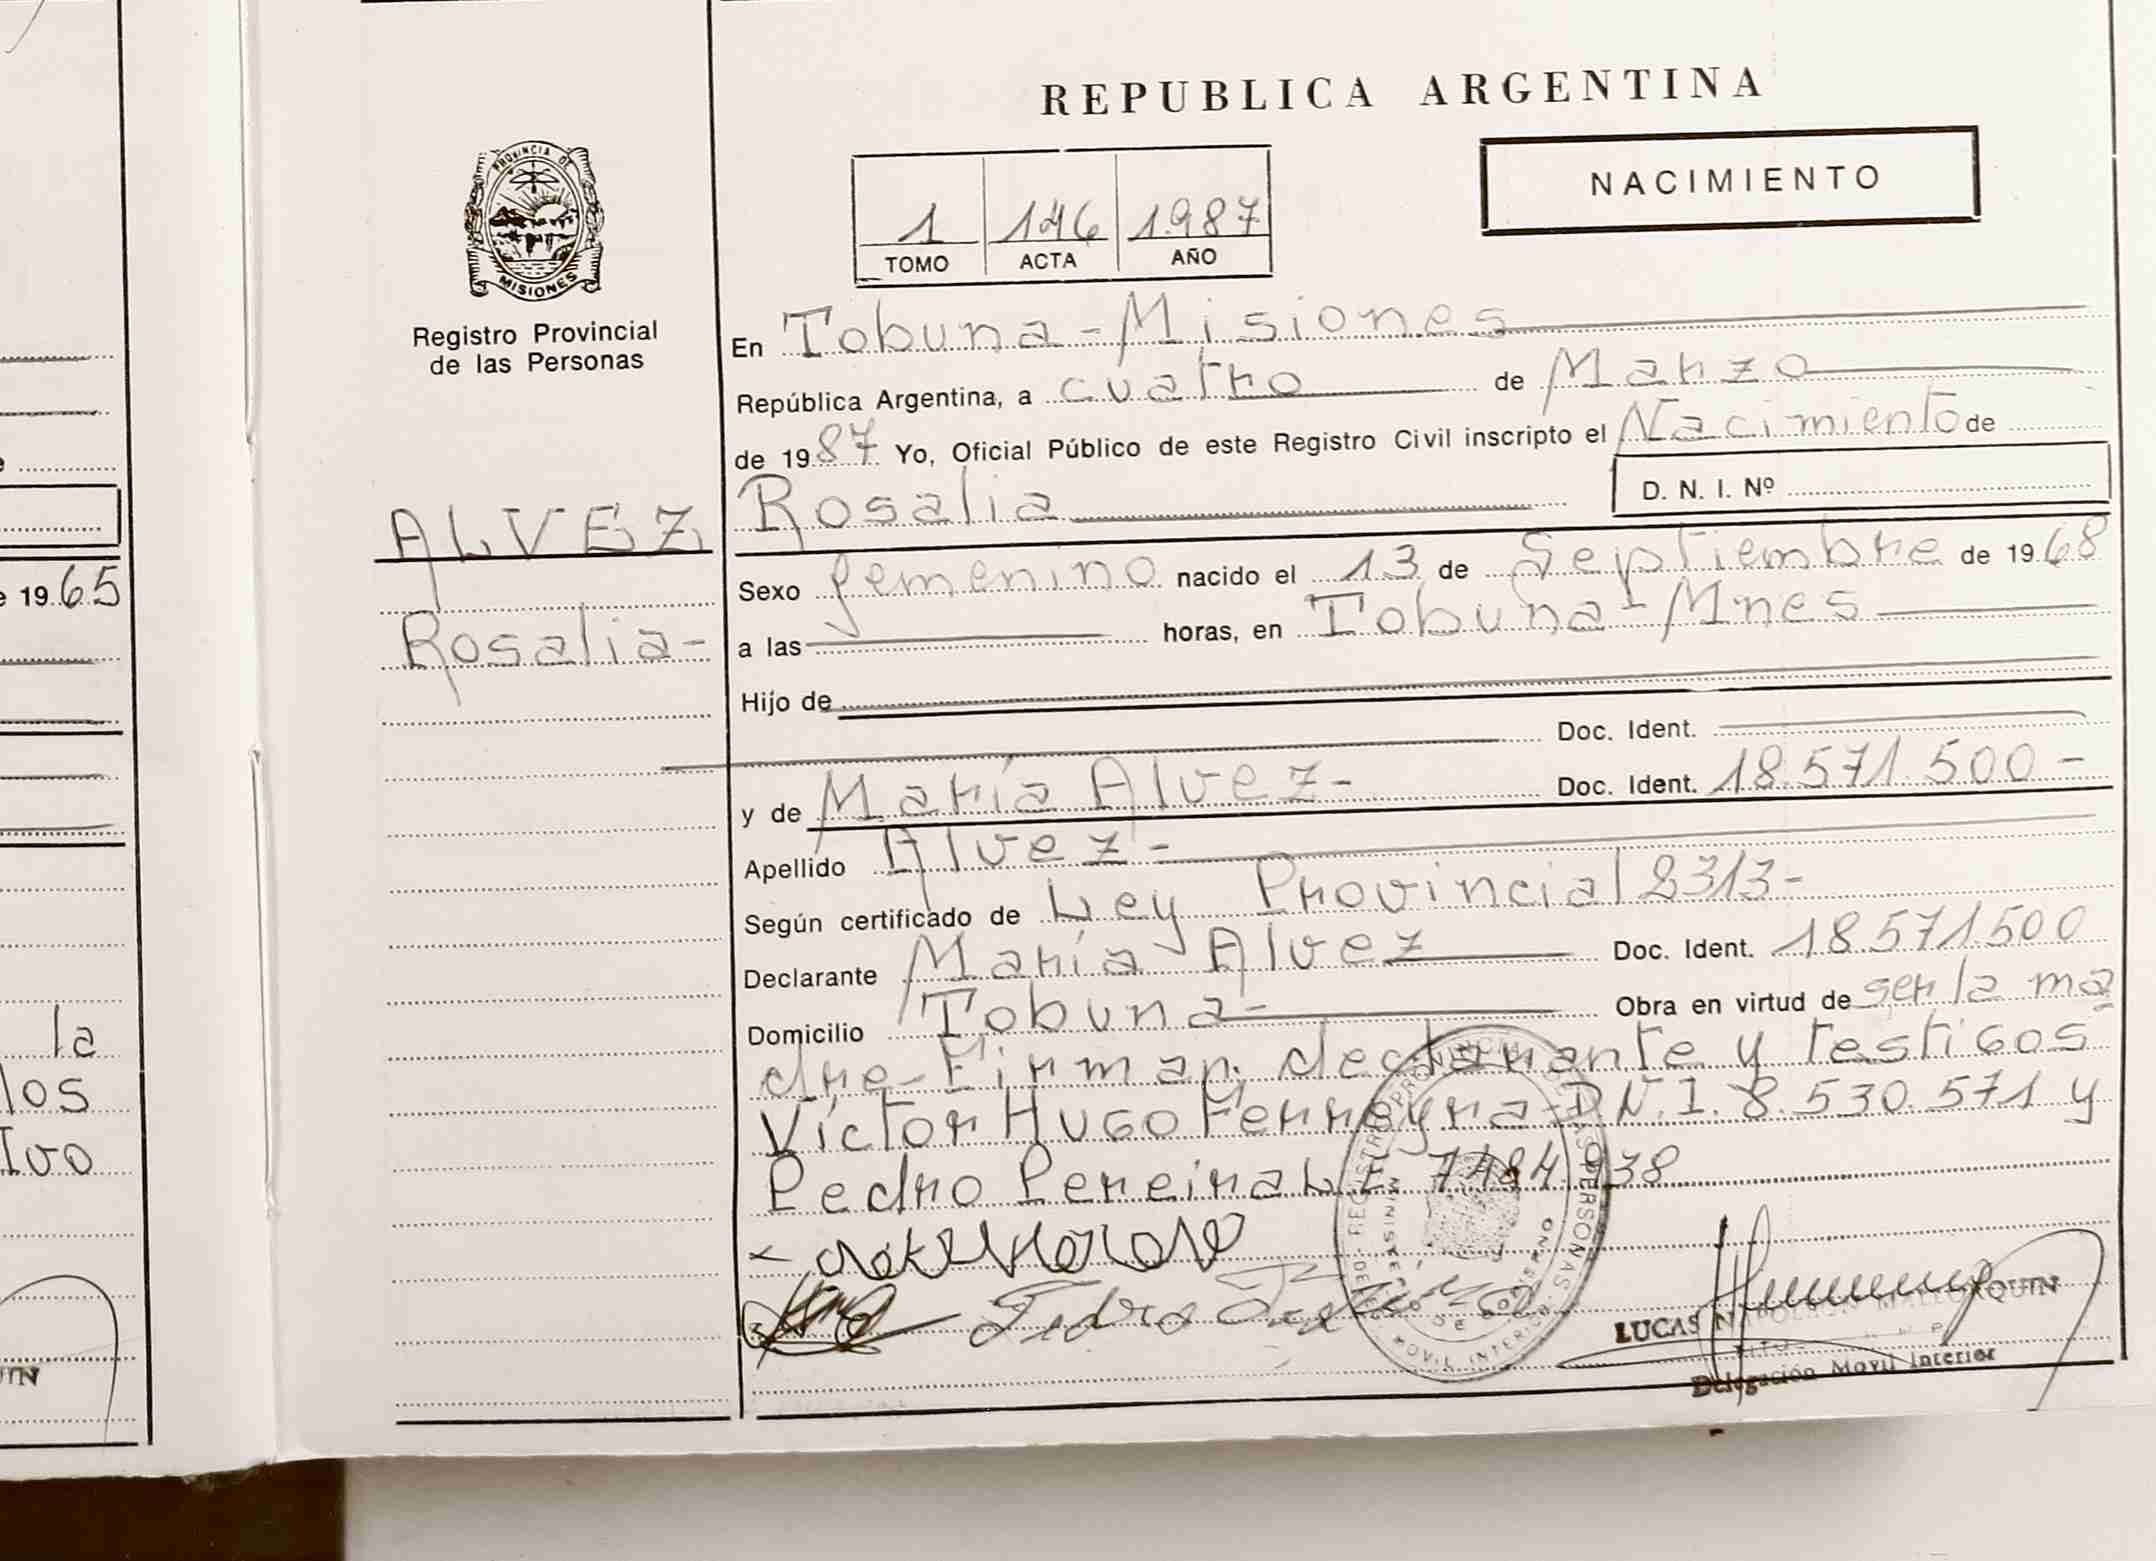 REPUBLICA ARGENTINA
NACIMIENTO
PROVINCIA DE
MISIONES
1 146 1987
TOMO ACTA AÑO
Registro Provincial
de las Personas
En Tobuna - Misiones
República Argentina, a cuatro de Marzo
de 1987 Yo, Oficial Público de este Registro Civil inscripto el Nacimiento de
ALVEZ
Rosalia -
Rosalia
D. N. I. Nº
Sexo femenino nacido el 13 de Septiembre de 1968
a las horas, en Tobuna - Mnes
Hijo de
Doc. Ident.
y de María Alvez - Doc. Ident. 18.571.500 -
Apellido Alvez -
Según certificado de Ley Provincial 2313 -
Declarante María Alvez Doc. Ident. 18.571.500
Domicilio Tobuna - Obra en virtud de ser la ma
dre - Firman declarante y testigos
Víctor Hugo Ferreyra - D.N.I. 8.530.571 y
Pedro Pereira L.E.
LUCAS NAPOLEON MALLORQUIN
Delegación Movil Interior
e 1965
la
los
Ivo